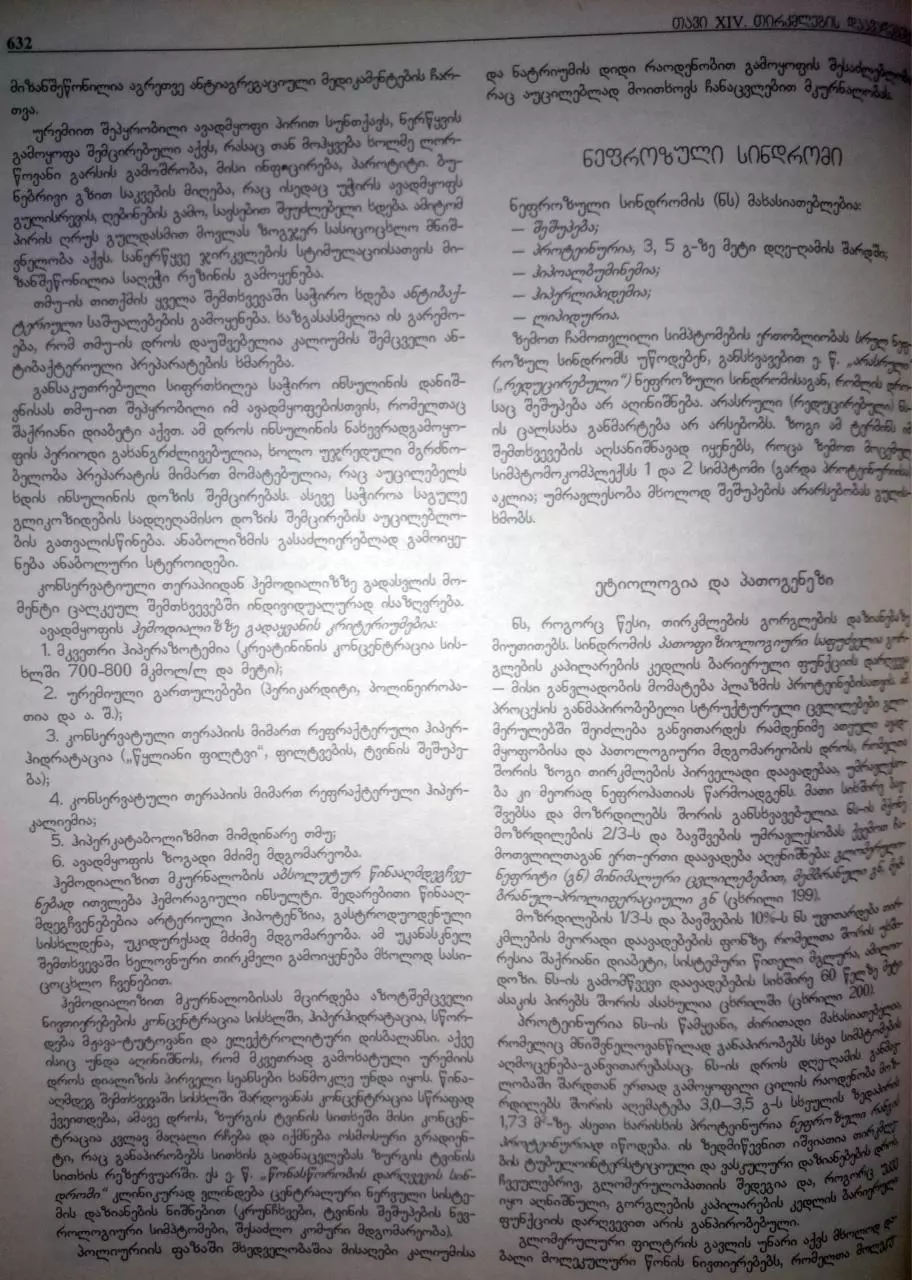 632
თავი XIV. თირკმლების დაავადებები
მიზანშეწონილია აგრეთვე ანტიაგრეგაციული მედიკამენტების ჩარ-
თვა.
ურემიით შეპყრობილი ავადმყოფი პირით სუნთქავს, ნერწყვის
გამოყოფა შემცირებული აქვს, რასაც თან მოჰყვება ხოლმე ლორ-
წოვანი გარსის გამოშრობა, მისი ინფიცირება, პაროტიტი. ბუ-
ნებრივი გზით საკვების მიღება, რაც ისედაც უჭირს ავადმყოფს
გულისრევის, ღებინების გამო, სავსებით შეუძლებელი ხდება. ამიტომ
პირის ღრუს გულდასმით მოვლას ზოგჯერ სასიცოცხლო მნიშ-
ვნელობა აქვს. სანერწყვე ჯირკვლების სტიმულაციისათვის მი-
ზანშეწონილია საღეჭი რეზინის გამოყენება.
თმუ-ის თითქმის ყველა შემთხვევაში საჭირო ხდება ანტიბაქ-
ტერიული საშუალებების გამოყენება. ხაზგასასმელია ის გარემო-
ება, რომ თმუ-ის დროს დაუშვებელია კალიუმის შემცველი ან-
ტიბაქტერიული პრეპარატების ხმარება.
განსაკუთრებული სიფრთხილეა საჭირო ინსულინის დანიშ-
ვნისას თმუ-ით შეპყრობილი იმ ავადმყოფებისთვის, რომელთაც
შაქრიანი დიაბეტი აქვთ. ამ დროს ინსულინის ნახევრადგამოყო-
ფის პერიოდი გახანგრძლივებულია, ხოლო უჯრედული მგრძნო-
ბელობა პრეპარატის მიმართ მომატებულია, რაც აუცილებელს
ხდის ინსულინის დოზის შემცირებას. ასევე საჭიროა საგულე
გლიკოზიდების სადღეღამისო დოზის შემცირების აუცილებლო-
ბის გათვალისწინება. ანაბოლიზმის გასაძლიერებლად გამოიყე-
ნება ანაბოლური სტეროიდები.
კონსერვატიული თერაპიიდან ჰემოდიალიზზე გადასვლის მო-
მენტი ცალკეულ შემთხვევებში ინდივიდუალურად ისაზღვრება.
ავადმყოფის ჰემოდიალიზზე გადაყვანის კრიტერიუმებია:
1. მკვეთრი ჰიპერაზოტემია (კრეატინინის კონცენტრაცია სის-
ხლში 700-800 მკმოლ/ლ და მეტი);
2. ურემიული გართულებები (პერიკარდიტი, პოლინეიროპა-
თია და ა. შ.);
3. კონსერვატული თერაპიის მიმართ რეფრაქტერული ჰიპერ-
ჰიდრატაცია („წყლიანი ფილტვი“, ფილტვების, ტვინის შეშუპე-
ბა);
4. კონსერვატული თერაპიის მიმართ რეფრაქტერული ჰიპერ-
კალიემია;
5. ჰიპერკატაბოლიზმით მიმდინარე თმუ;
6. ავადმყოფის ზოგადი მძიმე მდგომარეობა.
ჰემოდიალიზით მკურნალობის აბსოლუტურ წინააღმდეგჩვე-
ნებად ითვლება ჰემორაგიული ინსულტი. შედარებითი წინააღ-
მდეგჩვენებებია არტერიული ჰიპოტენზია, გასტროდუოდენული
სისხლდენა, უკიდურესად მძიმე მდგომარეობა. ამ უკანასკნელ
შემთხვევაში ხელოვნური თირკმელი გამოიყენება მხოლოდ სასი-
ცოცხლო ჩვენებით.
ჰემოდიალიზით მკურნალობისას მცირდება აზოტშემცველი
ნივთიერებების კონცენტრაცია სისხლში, ჰიპერჰიდრატაცია, სწორ-
დება მჟავა-ტუტოვანი და ელექტროლიტური დისბალანსი. აქვე
ისიც უნდა აღინიშნოს, რომ მკვეთრად გამოხატული ურემიის
დროს დიალიზის პირველი სეანსები ხანმოკლე უნდა იყოს. წინა-
აღმდეგ შემთხვევაში სისხლში შარდოვანას კონცენტრაცია სწრაფად
ქვეითდება, ამავე დროს, ზურგის ტვინის სითხეში მისი კონცენ-
ტრაცია კვლავ მაღალი რჩება და იქმნება ოსმოსური გრადიენ-
ტი, რაც განაპირობებს სითხის გადანაცვლებას ზურგის ტვინის
სითხის რეზერვუარში. ეს ე. წ. „წონასწორობის დარღვევის სინ-
დრომი“ კლინიკურად ვლინდება ცენტრალური ნერვული სისტე-
მის დაზიანების ნიშნებით (კრუნჩხვები, ტვინის შეშუპების ნევ-
როლოგიური სიმპტომები, შესაძლო კომური მდგომარეობა).
პოლიურიის ფაზაში მხედველობაშია მისაღები კალიუმისა
და ნატრიუმის დიდი რაოდენობით გამოყოფის შესაძლებლობა,
რაც აუცილებლად მოითხოვს ჩანაცვლებით მკურნალობას.
ნეფროზული სინდრომი
ნეფროზული სინდრომის (ნს) მახასიათებლებია:
— შეშუპება;
— პროტეინურია, 3, 5 გ-ზე მეტი დღე-ღამის შარდში;
— ჰიპოალბუმინემია;
— ჰიპერლიპიდემია;
— ლიპიდურია.
ზემოთ ჩამოთვლილი სიმპტომების ერთობლიობას სრულ ნეფ-
როზულ სინდრომს უწოდებენ, განსხვავებით ე. წ. „არასრული
(„რედუცირებული“) ნეფროზული სინდრომისაგან, რომლის დრო-
საც შეშუპება არ აღინიშნება. არასრული (რედუცირებული) ნს-
ის ცალსახა განმარტება არ არსებობს. ზოგი ამ ტერმინს იმ
შემთხვევების აღსანიშნავად იყენებს, როცა ზემოთ მოცემულ
სიმპტომოკომპლექსს 1 და 2 სიმპტომი (გარდა პროტეინურიისა)
აკლია; უმრავლესობა მხოლოდ შეშუპების არარსებობას გულის-
ხმობს.
ეტიოლოგია და პათოგენეზი
ნს, როგორც წესი, თირკმლების გორგლების დაზიანებაზე
მიუთითებს. სინდრომის პათოფიზიოლოგიური საფუძველია გორ-
გლების კაპილარების კედლის ბარიერული ფუნქციის დარღვევა
— მისი განვლადობის მომატება პლაზმის პროტეინებისათვის. ამ
პროცესის განმაპირობებელი სტრუქტურული ცვლილებები გლო-
მერულებში შეიძლება განვითარდეს რამდენიმე ათეული ავად-
მყოფობისა და პათოლოგიური მდგომარეობის დროს, რომელთა
შორის ზოგი თირკმლების პირველადი დაავადებაა, უმრავლესო-
ბა კი მეორად ნეფროპათიას წარმოადგენს. მათი სიხშირე ბავ-
შვებსა და მოზრდილებს შორის განსხვავებულია. ნს-ის მქონე
მოზრდილების 2/3-ს და ბავშვების უმრავლესობას ქვემოთ ჩა-
მოთვლილთაგან ერთ-ერთი დაავადება აღენიშნება: გლომერულო-
ნეფრიტი (გნ) მინიმალური ცვლილებებით, მემბრანული გნ, მემ-
ბრანულ-პროლიფერაციული გნ (ცხრილი 199).
მოზრდილების 1/3-ს და ბავშვების 10%-ს ნს უვითარდება თირ-
კმლების მეორადი დაავადებების ფონზე, რომელთა შორის უხში-
რესია შაქრიანი დიაბეტი, სისტემური წითელი მგლურა, ამილოი-
დოზი. ნს-ის გამომწვევი დაავადებების სიხშირე 60 წელზე მეტი
ასაკის პირებს შორის ასახულია ცხრილში (ცხრილი 200).
პროტეინურია ნს-ის წამყვანი, ძირითადი მახასიათებელია,
რომელიც მნიშვნელოვანწილად განაპირობებს სხვა სიმპტომების
აღმოცენება-განვითარებასაც. ნს-ის დროს დღე-ღამის განმავ-
ლობაში შარდთან ერთად გამოყოფილი ცილის რაოდენობა მოზ-
რდილებს შორის აღემატება 3,0—3,5 გ-ს სხეულის ზედაპირის
1,73 მ²-ზე. ასეთი ხარისხის პროტეინურია ნეფროზული რანგის
პროტეინურიად იწოდება. ის ზედმიწევნით იშვიათია თირკმლე-
ბის ტუბულოინტერსტიციული და ვასკულური დაზიანებების დროს.
ჩვეულებრივ, გლომერულოპათიის შედეგია და, როგორც უკვე
იყო აღნიშნული, გორგლების კაპილარების კედლის ბარიერული
ფუნქციის დარღვევით არის განპირობებული.
გლომერულური ფილტრის გავლის უნარი აქვს მხოლოდ და-
ბალი მოლეკულური წონის ნივთიერებებს, რომელთა